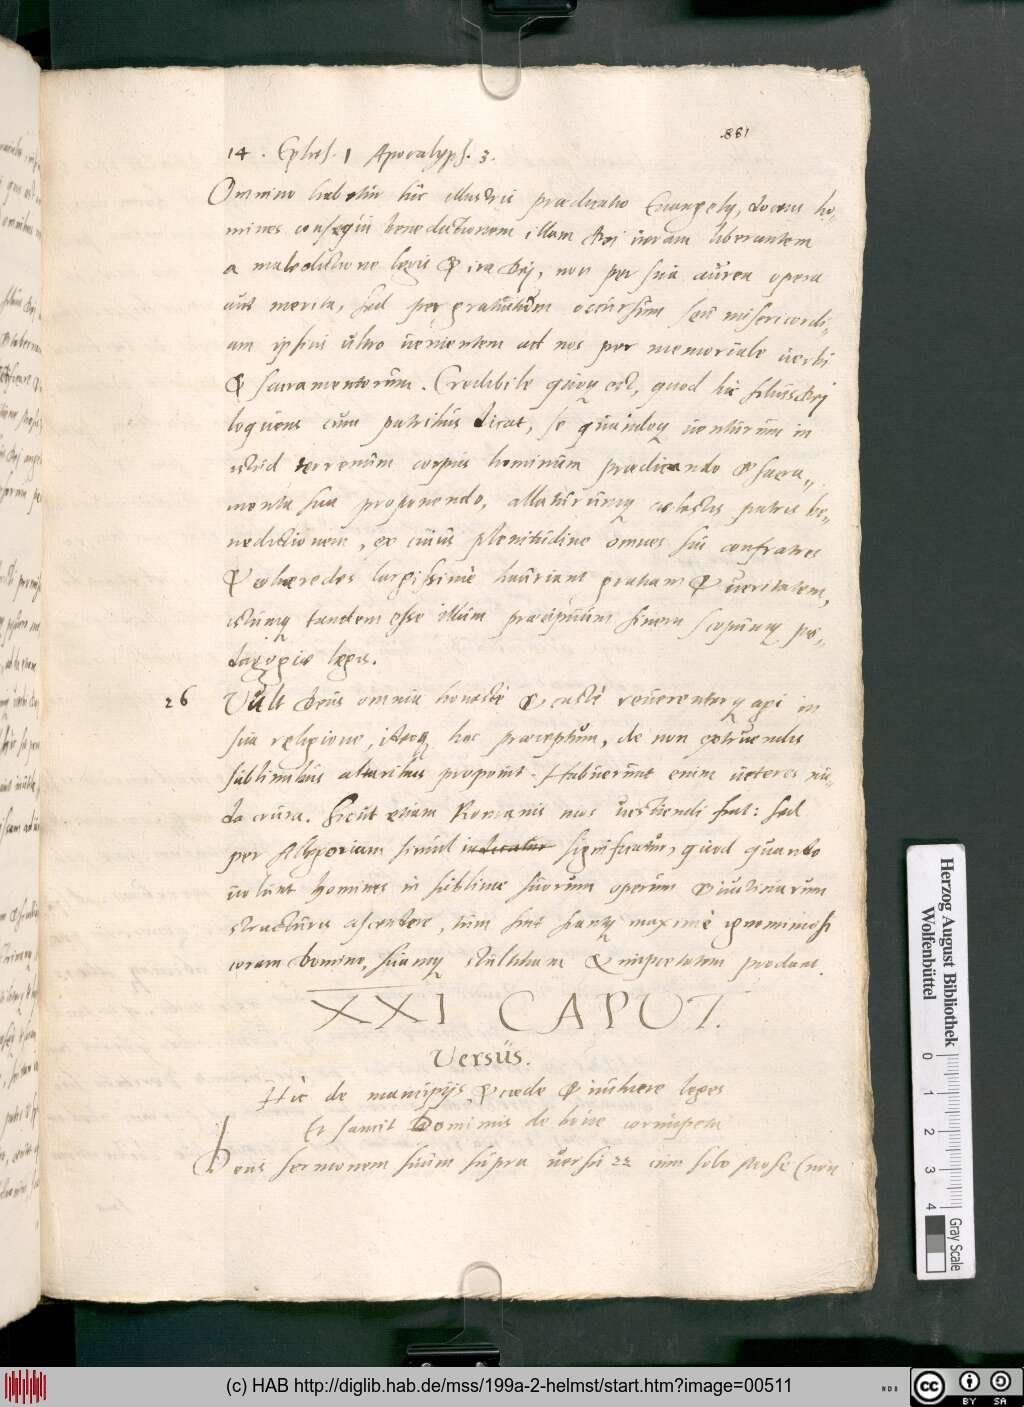 881
14. Ephes. 1 Apocalyps. 3.
Omnino habetur hic illustris praedicatio Euangelij, docens ho,
mines consequi benedictionem illam Dei ueram liberantem
a maledictione legis & ira Dei, non per sua aurea opera
aut merita, sed per gratuitum occursum seu misericordi,,
am ipsius ultro uenientem ad nos per memoriale uerbi
& sacramentorum. Credibile quoq est, quod hic filius Dei
loquens cum patribus dicat, se quandoq uenturum in
istud terrenum corpus hominum praedicando & sacra,,
menta sua proponendo, allaturumq caelestis patris be,,
nedictionem, ex cuius plenitudine omnes sui confratres
& cohaeredes largissimè hauriant gratiam & ueritatem,
istumq tandem esse illum praecipuum finem scopumq pae,,
dagogiae legis.
26 Vult Deus omnia honestè & castè reuerenterq agi in
sua religione, itaq hoc praeceptum, de non extruendis
sublimibus altaribus proponit. Habuerunt enim ueteres nu,,
da crura. sicut etiam Romanis mos uestiendi fuit: sed
per Allegoriam simul indicatur significatur, quod quando
uolunt homines in sublime suorum operum & iustitiarum
structuris ascendere, tum sint suntq maximè ignominiosi
coram Domino, suamq stultitiam & impietatem produnt.
XXI CAPUT.
Versus.
Hic de mancipijs & caede & uulnere leges
Et sancit Dominis de boue cornupeta
Deus sermonem suum supra uersu 22 cum solo Mose (non
(c) HAB http://diglib.hab.de/mss/199a-2-helmst/start.htm?image=00511
Herzog August Bibliothek
Wolfenbüttel
0 1 2 3 4
Gray Scale
cc BY SA